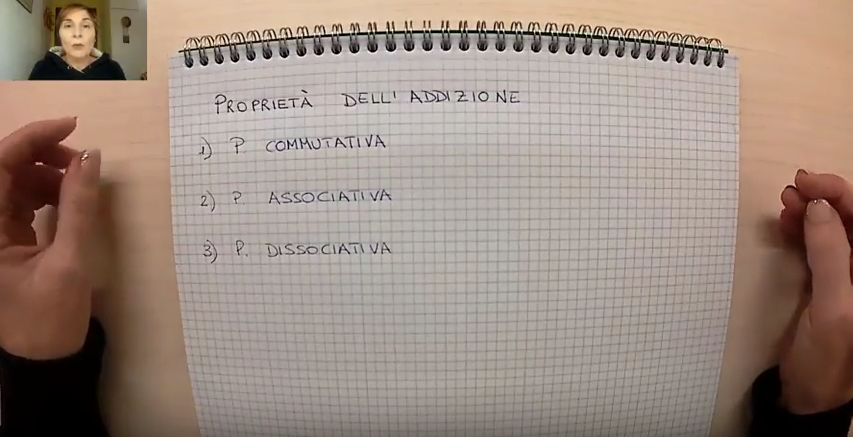 PROPRIETÀ DELL'ADDIZIONE
1) P COMMUTATIVA
2) P ASSOCIATIVA
3) P. DISSOCIATIVA